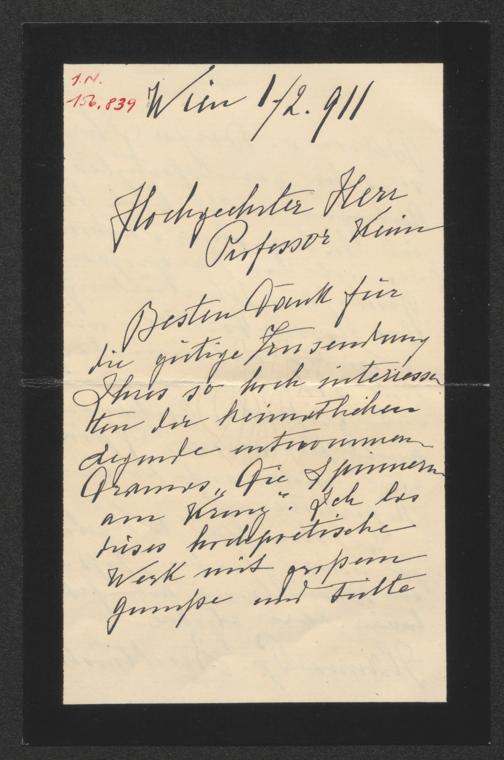 I.N.
156.839
Wien 1/2. 911
Hochgeehrter Herr
Professor Keim
Besten Dank für
die gütige Zusendung
Ihres so hoch interessan
ten der heimatlichen
Legende entnommenen
Dramas "Die Spinnerin
am Kreuz". Ich las
dieses hochpoetische
Werk mit großem
Genuße und teilte